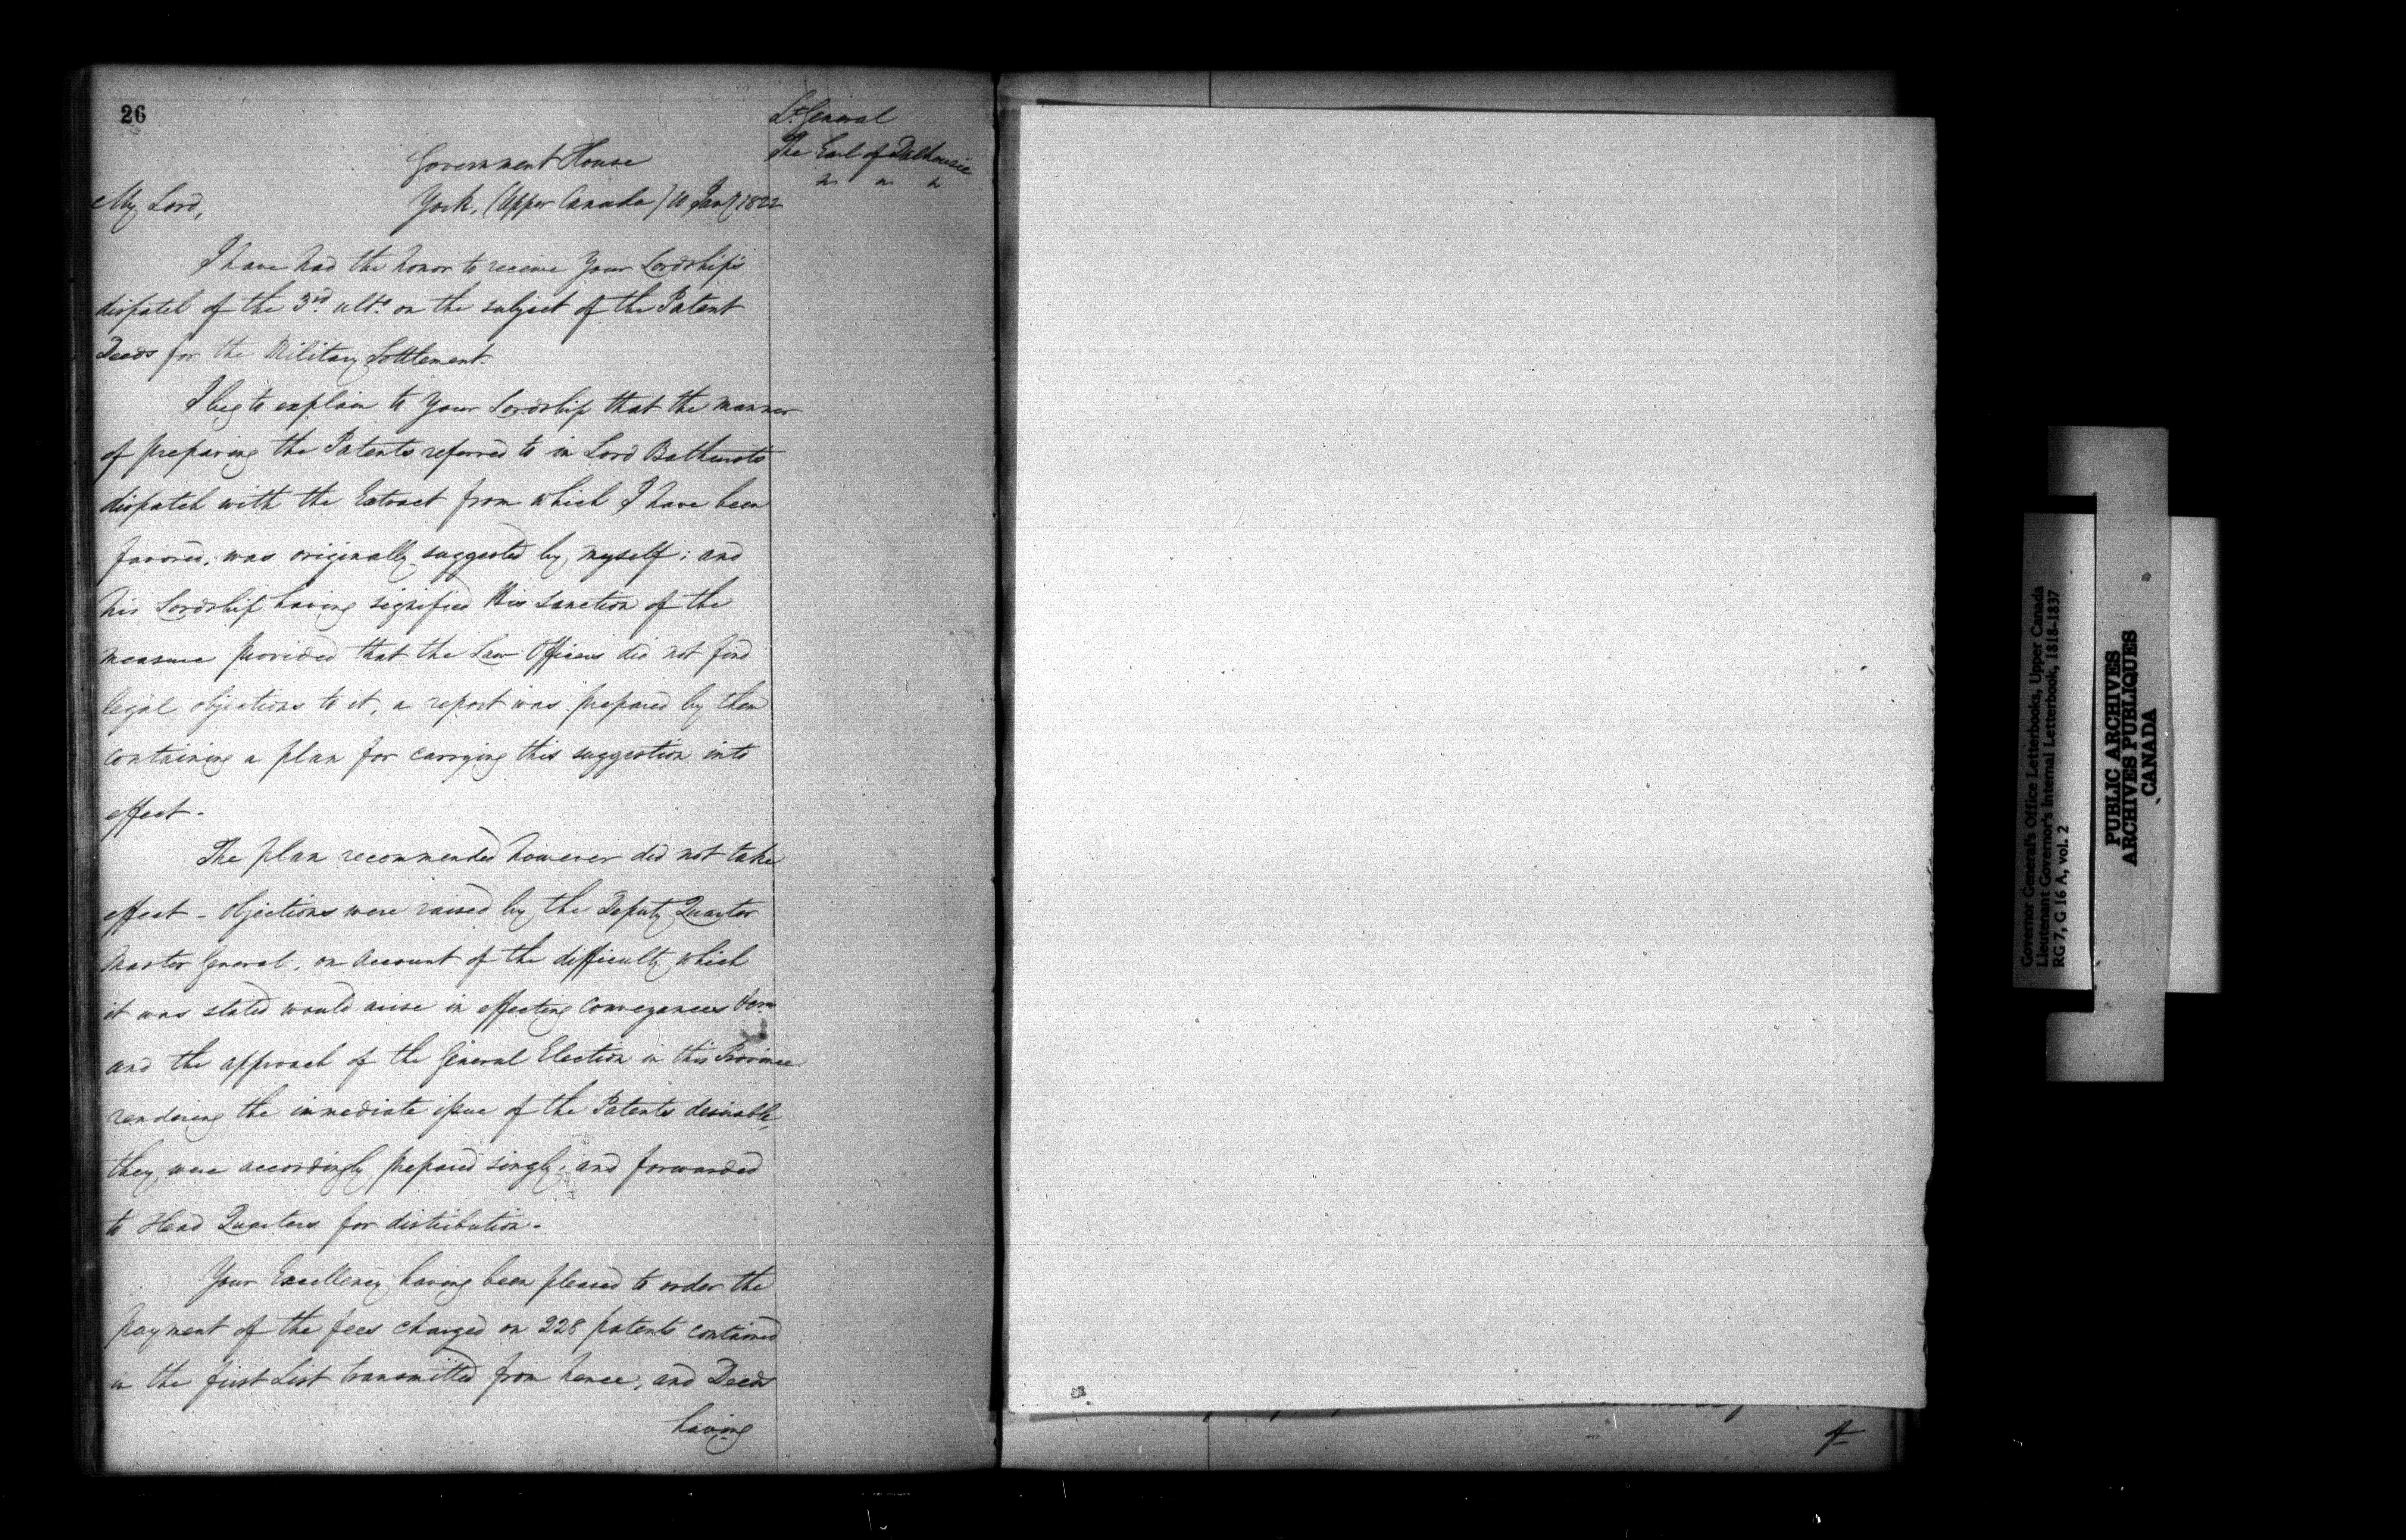 26
Lt. General
The Earl of Dalhousie
Government House
My Lord,
York, (Upper Canada) 10 Jany 1822
I have had the honor to receive Your Lordship's
dispatch of the 3rd. ulto. on the subject of the Patent
Deeds for the Military Settlement.
I beg to explain to Your Lordship that the manner
of preparing the Patents referred to in Lord Bathursts
dispatch with the Extract from which I have been
favored, was originally suggested by myself; and
his Lordship having signified His sanction of the
measure provided that the Law Officers did not find
legal objections to it, a report was prepared by them
containing a plan for carrying this suggestion into
effect -
The plan recommended however did not take
effect - objections were raised by the Deputy Quarter
Master General, on account of the difficulty which
it was stated would arise in effecting conveyances
and the approach of the General Election in this Province
rendering the immediate issue of the Patents desirable,
they were accordingly prepared singly, and forwarded
to Head Quarters for distribution -
Your Excellency having been pleased to order the
payment of the fees charged on 228 patents contained
in the first List transmitted from hence, and Deeds
having
of
Governor General's Office Letterbooks, Upper Canada
Lieutenant Governor's Internal Letterbook, 1818-1837
RG 7, G 16 A, vol. 2
PUBLIC ARCHIVES
ARCHIVES PUBLIQUES
CANADA